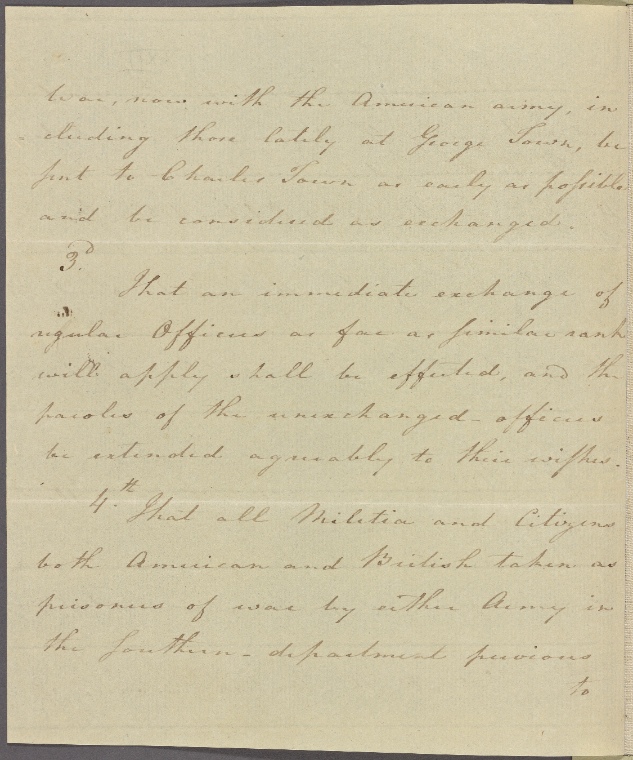 War, now with the American army, in
-cluding those lately at George Town, be
sent to Charles Town as early as possible
and be considered as exchanged.
3.d
That an immediate exchange of
regular Officers as far as similar rank
will apply shall be effected, and the
paroles of the unexchanged officers
be extended agreeably to their wishes.
4.th That all Militia and Citizens
both American and British taken as
prisoners of war by either Army in
the Southern department previous
to